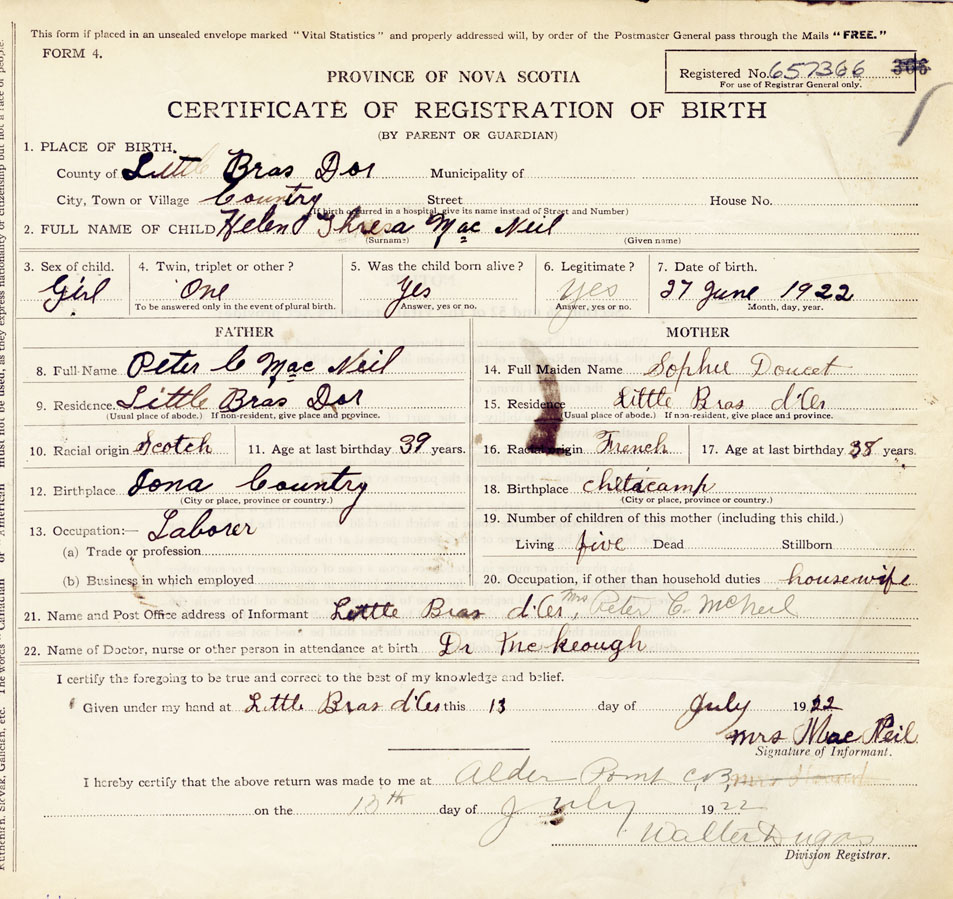 This form if placed in an unsealed envelope marked "Vital Statistics" and properly addressed will, by order of the Postmaster General pass through the Mails "FREE."
FORM 4.
PROVINCE OF NOVA SCOTIA
Registered No. 657366 366
For use of Registrar General only.
CERTIFICATE OF REGISTRATION OF BIRTH
(BY PARENT OR GUARDIAN)
1. PLACE OF BIRTH.
County of Little Bras Dor Municipality of
City, Town or Village Country Street House No.
(If birth occurred in a hospital, give its name instead of Street and Number)
2. FULL NAME OF CHILD Helen Thresa Mac Neil
(Surname) (Given name)
3. Sex of child. 4. Twin, triplet or other? 5. Was the child born alive? 6. Legitimate? 7. Date of birth.
Girl One Yes yes 27 June 1922
To be answered only in the event of plural birth. Answer, yes or no. Answer, yes or no. Month, day, year.
FATHER MOTHER
8. Full Name Peter C Mac Neil 14. Full Maiden Name Sophie Doucet
9. Residence. Little Bras Dor 15. Residence Little Bras d'Or
(Usual place of abode.) If non-resident, give place and province. (Usual place of abode.) If non-resident, give place and province.
10. Racial origin Scotch 11. Age at last birthday 39 years. 16. Racial origin French 17. Age at last birthday 38 years.
12. Birthplace Iona Country 18. Birthplace Chetacamp
(City or place, province or country.) (City or place, province or country.)
13. Occupation:— Laborer 19. Number of children of this mother (including this child.)
(a) Trade or profession Living five Dead Stillborn
(b) Business in which employed 20. Occupation, if other than household duties housewife
21. Name and Post Office address of Informant Little Bras d'Or, Mrs Peter C. McNeil
22. Name of Doctor, nurse or other person in attendance at birth Dr McKeough
I certify the foregoing to be true and correct to the best of my knowledge and belief.
Given under my hand at Little Bras d'Or this 13 day of July 1922
Mrs Mac Neil
Signature of Informant.
I hereby certify that the above return was made to me at Alder Point C.B,
on the 13th day of July 1922
Walter Dugas
Division Registrar.